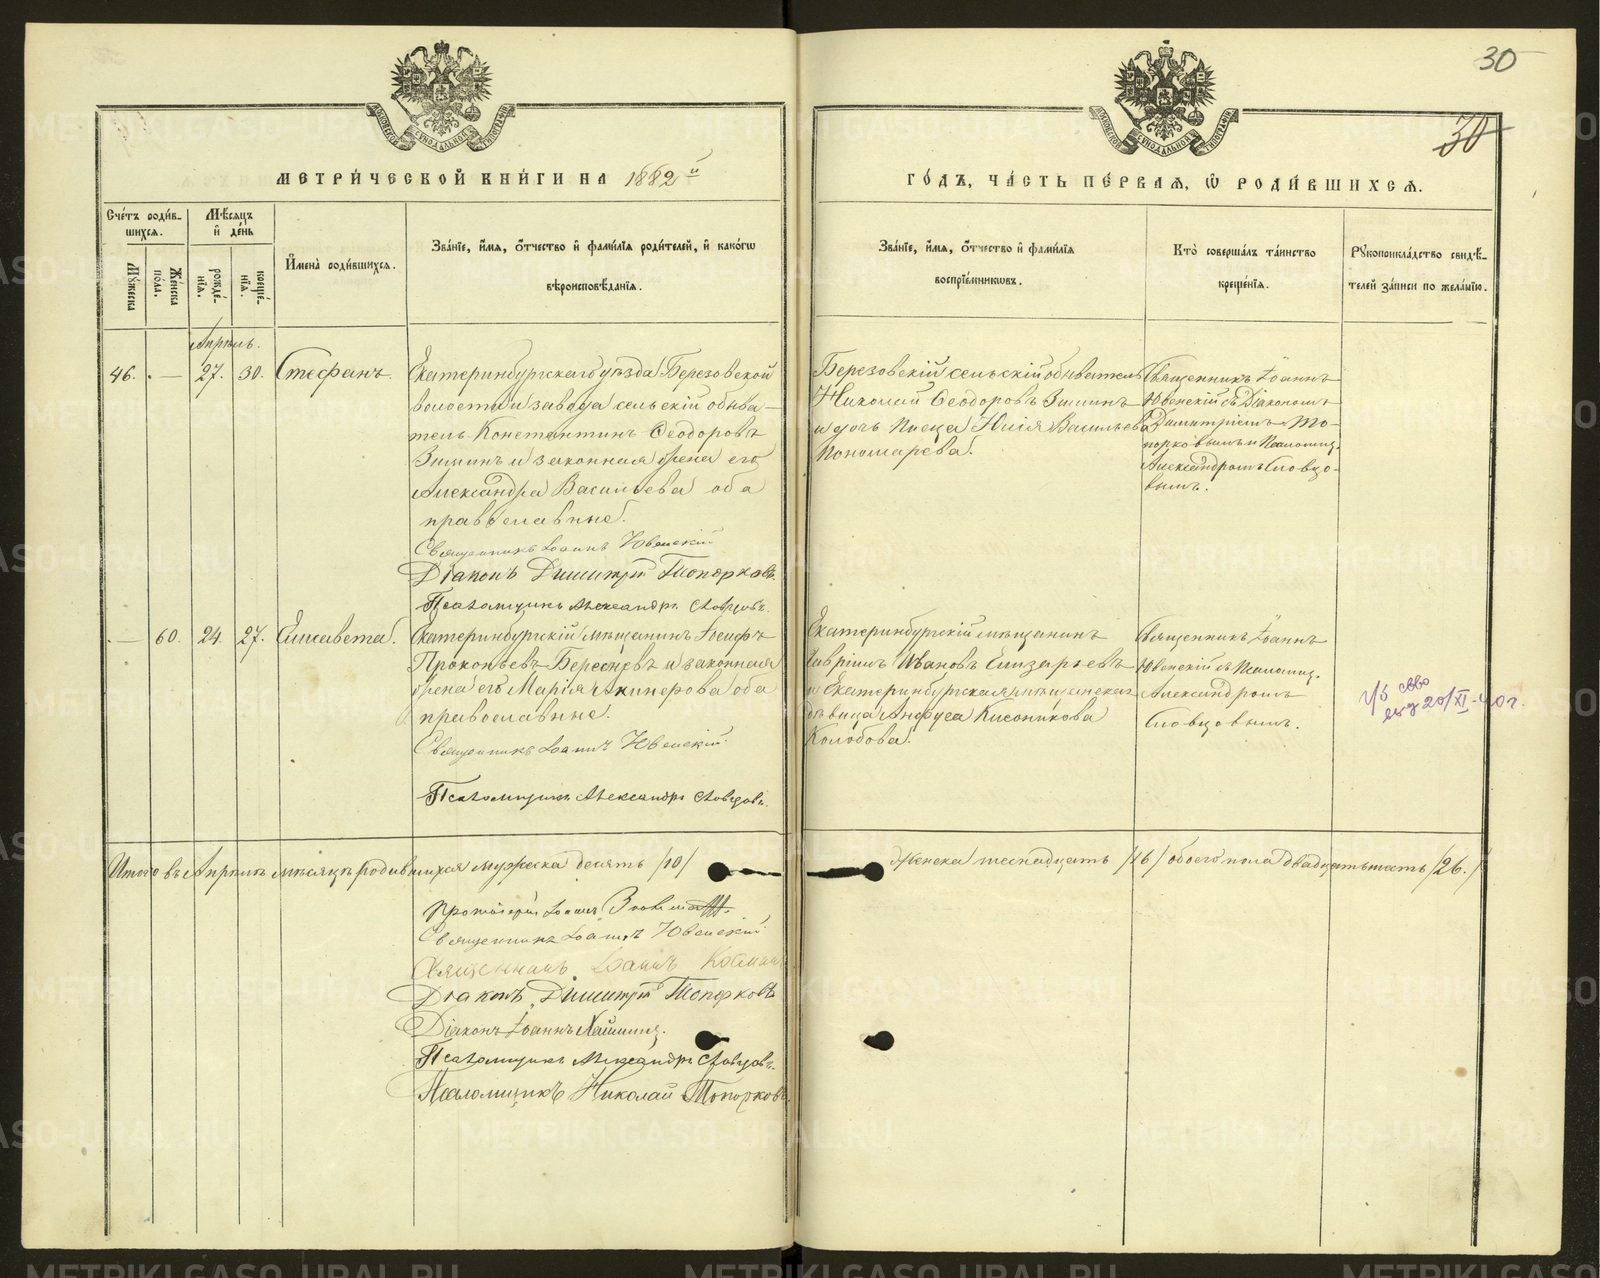 30
30
МЕТРИ́ЧЕСКОЙ КНИ́ГИ НА 1882й
ГО́ДЪ, ЧА́СТЬ ПЕ́РВАЯ, Ѡ РОДИ́ВШИХСЯ.
Сче́тъ роди́в-
шихся.
Му́жеска
Же́нска
по́ла.
Мѣ́сяцъ
и де́нь
рожде́-
нїя.
креще́-
нїя.
И҆мена̀ роди́вшихся.
Зва́нїе, и҆́мя, ѻ҆́тчество и҆ фами́лїя роди́телей, и҆ како́гѡ
вѣроисповѣ́данїя.
Зва́нїе, и҆́мя, ѻ҆́тчество и҆ фами́лїя
воспрїе́мникѡвъ.
Кто̀ соверша́лъ та́инство
креще́нїя.
Рꙋкоприкла́дство свидѣ́-
телей за́писи по жела́нїю.
Апрѣль.
46. — 27. 30. Стефанъ.
Екатеринбургскаго уѣзда Березовской
волости и завода сельскій обыва-
тель Константинъ Ѳеодоровъ
Зыминъ и законная жена его
Александра Васильева оба
православные.
Священникъ Іоаннъ Ювенскій
Діаконъ Димитрій Топорковъ.
Псаломщикъ Александръ Словцовъ.
Березовскій сельскій обыватель
Николай Ѳеодоровъ Зыминъ
и дочь
Васильева
Пономарева.
Священникъ Іоаннъ
Ювенскій съ Діакономъ
Димитріемъ То-
порковымъ и Псаломщ.
Александромъ Словцо-
вымъ.
— 60. 24. 27. Елисавета.
Екатеринбургскій мѣщанинъ Іосифъ
Прокопьевъ Бересневъ и законная
жена его Марія оба
православные.
Священникъ Іоаннъ Ювенскій
Псаломщикъ Александръ Словцовъ.
Екатеринбургскій мѣщанинъ
Гавріилъ Ивановъ Елизарьевъ
и Екатеринбургская мѣщанская
дѣвица Анфуса
Колобова.
Священникъ Іоаннъ
Ювенскій съ Псаломщ.
Александромъ
Словцовымъ.
20/XI-40г.
Итого въ Апрѣлѣ мѣсяцѣ родившихся мужеска десять /10/ женска шестнадцать /16/ обоего пола двадцать шесть /26./
Протоіерей Іоаннъ
Священникъ Іоаннъ Ювенскій
Священникъ Іоаннъ
Діаконъ Димитрій Топорковъ
Діаконъ Іоаннъ
Псаломщикъ Александръ Словцовъ.
Псаломщикъ Николай Топорковъ
METRIKI.GASO-URAL.RU